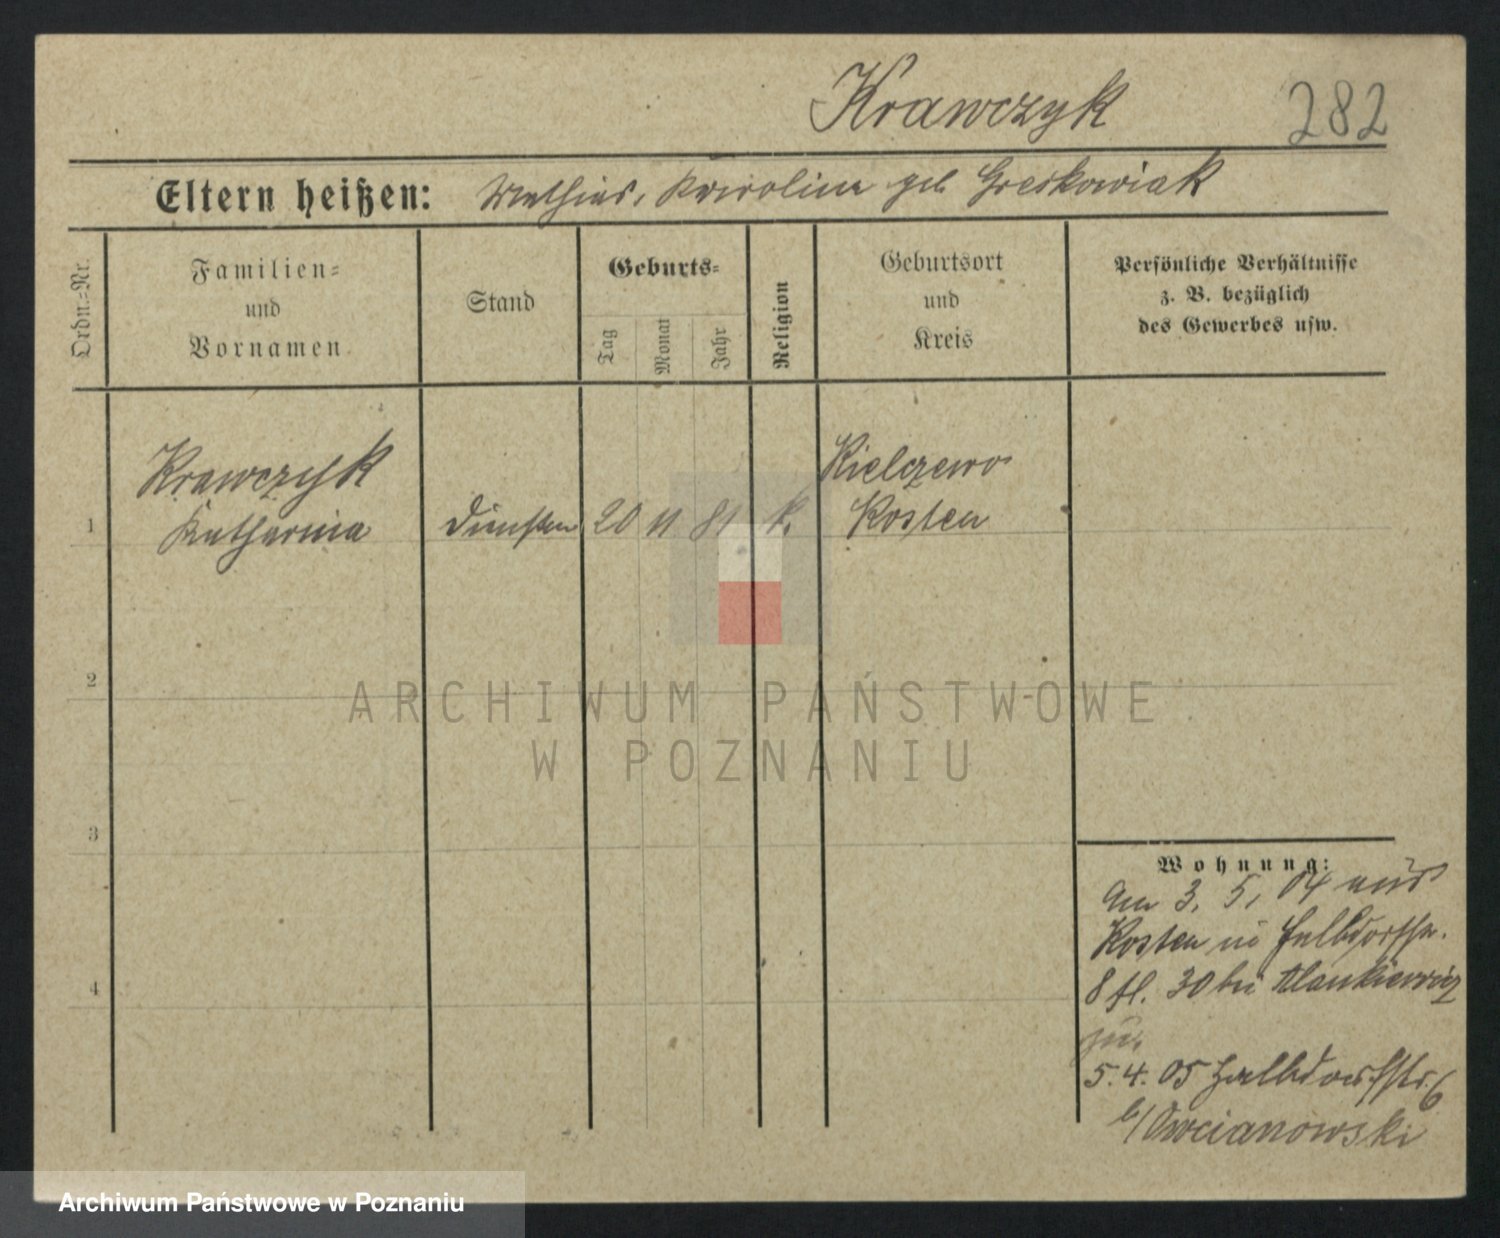 Krawczyk 282
Eltern heißen: Mathias, Karolina geb Greskowiak
Ordn.=Nr.
Familien=
und
Vornamen
Stand
Geburts=
Tag
Monat
Jahr
Religion
Geburtsort
und
Kreis
Persönliche Verhältnisse
z. B. bezüglich
des Gewerbes usw.
1
Krawczyk
Katharina
20 11 81 k.
Kielczewo
Kosten
2
3
4
Wohnung:
am 3. 5. 04 aus
Kosten in Halbdorfstr.
8 fl. 30 bei
zu.
5. 4. 05 Halbdorfstr. 6
b/ Owcianowski
ARCHIWUM PAŃSTWOWE
W POZNANIU
Archiwum Państwowe w Poznaniu